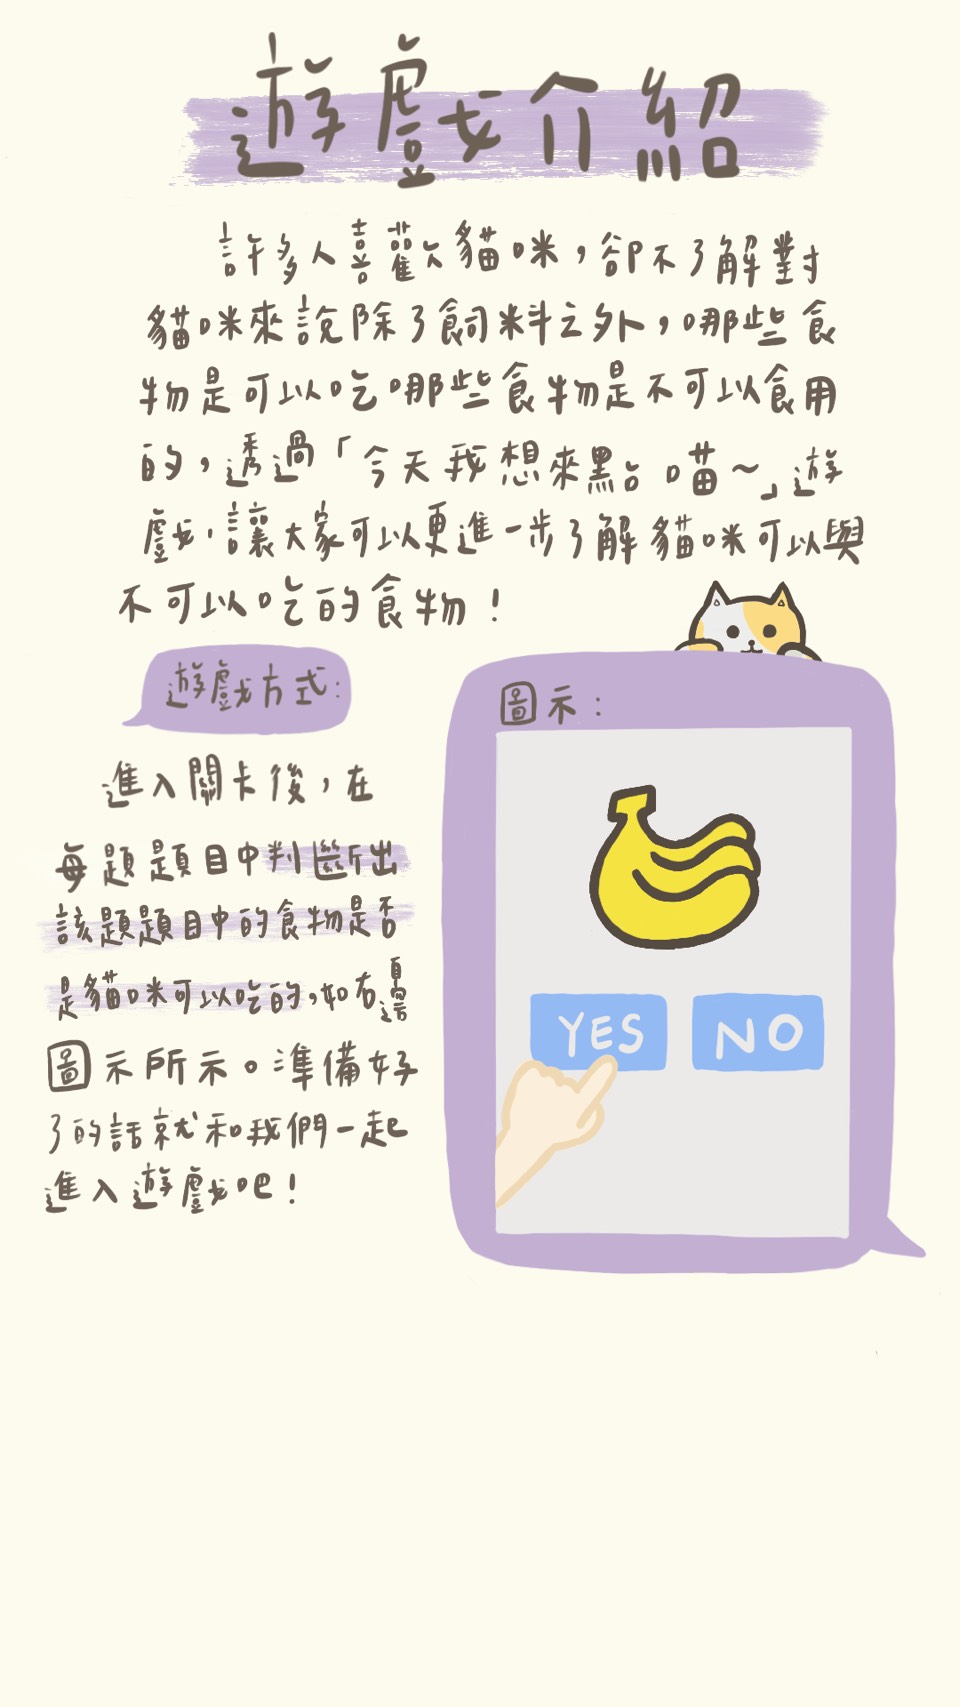 遊戲介紹
許多人喜歡貓咪,卻不了解對
貓咪來說除了飼料之外,哪些食
物是可以吃哪些食物是不可以食用
的,透過「今天我想來點喵~」遊
戲,讓大家可以更進一步了解貓咪可以與
不可以吃的食物!
遊戲方式:
進入關卡後,在
每題題目中判斷出
該題題目中的食物是否
是貓咪可以吃的,如右邊
圖示所示。準備好
了的話就和我們一起
進入遊戲吧!
圖示:
YES NO